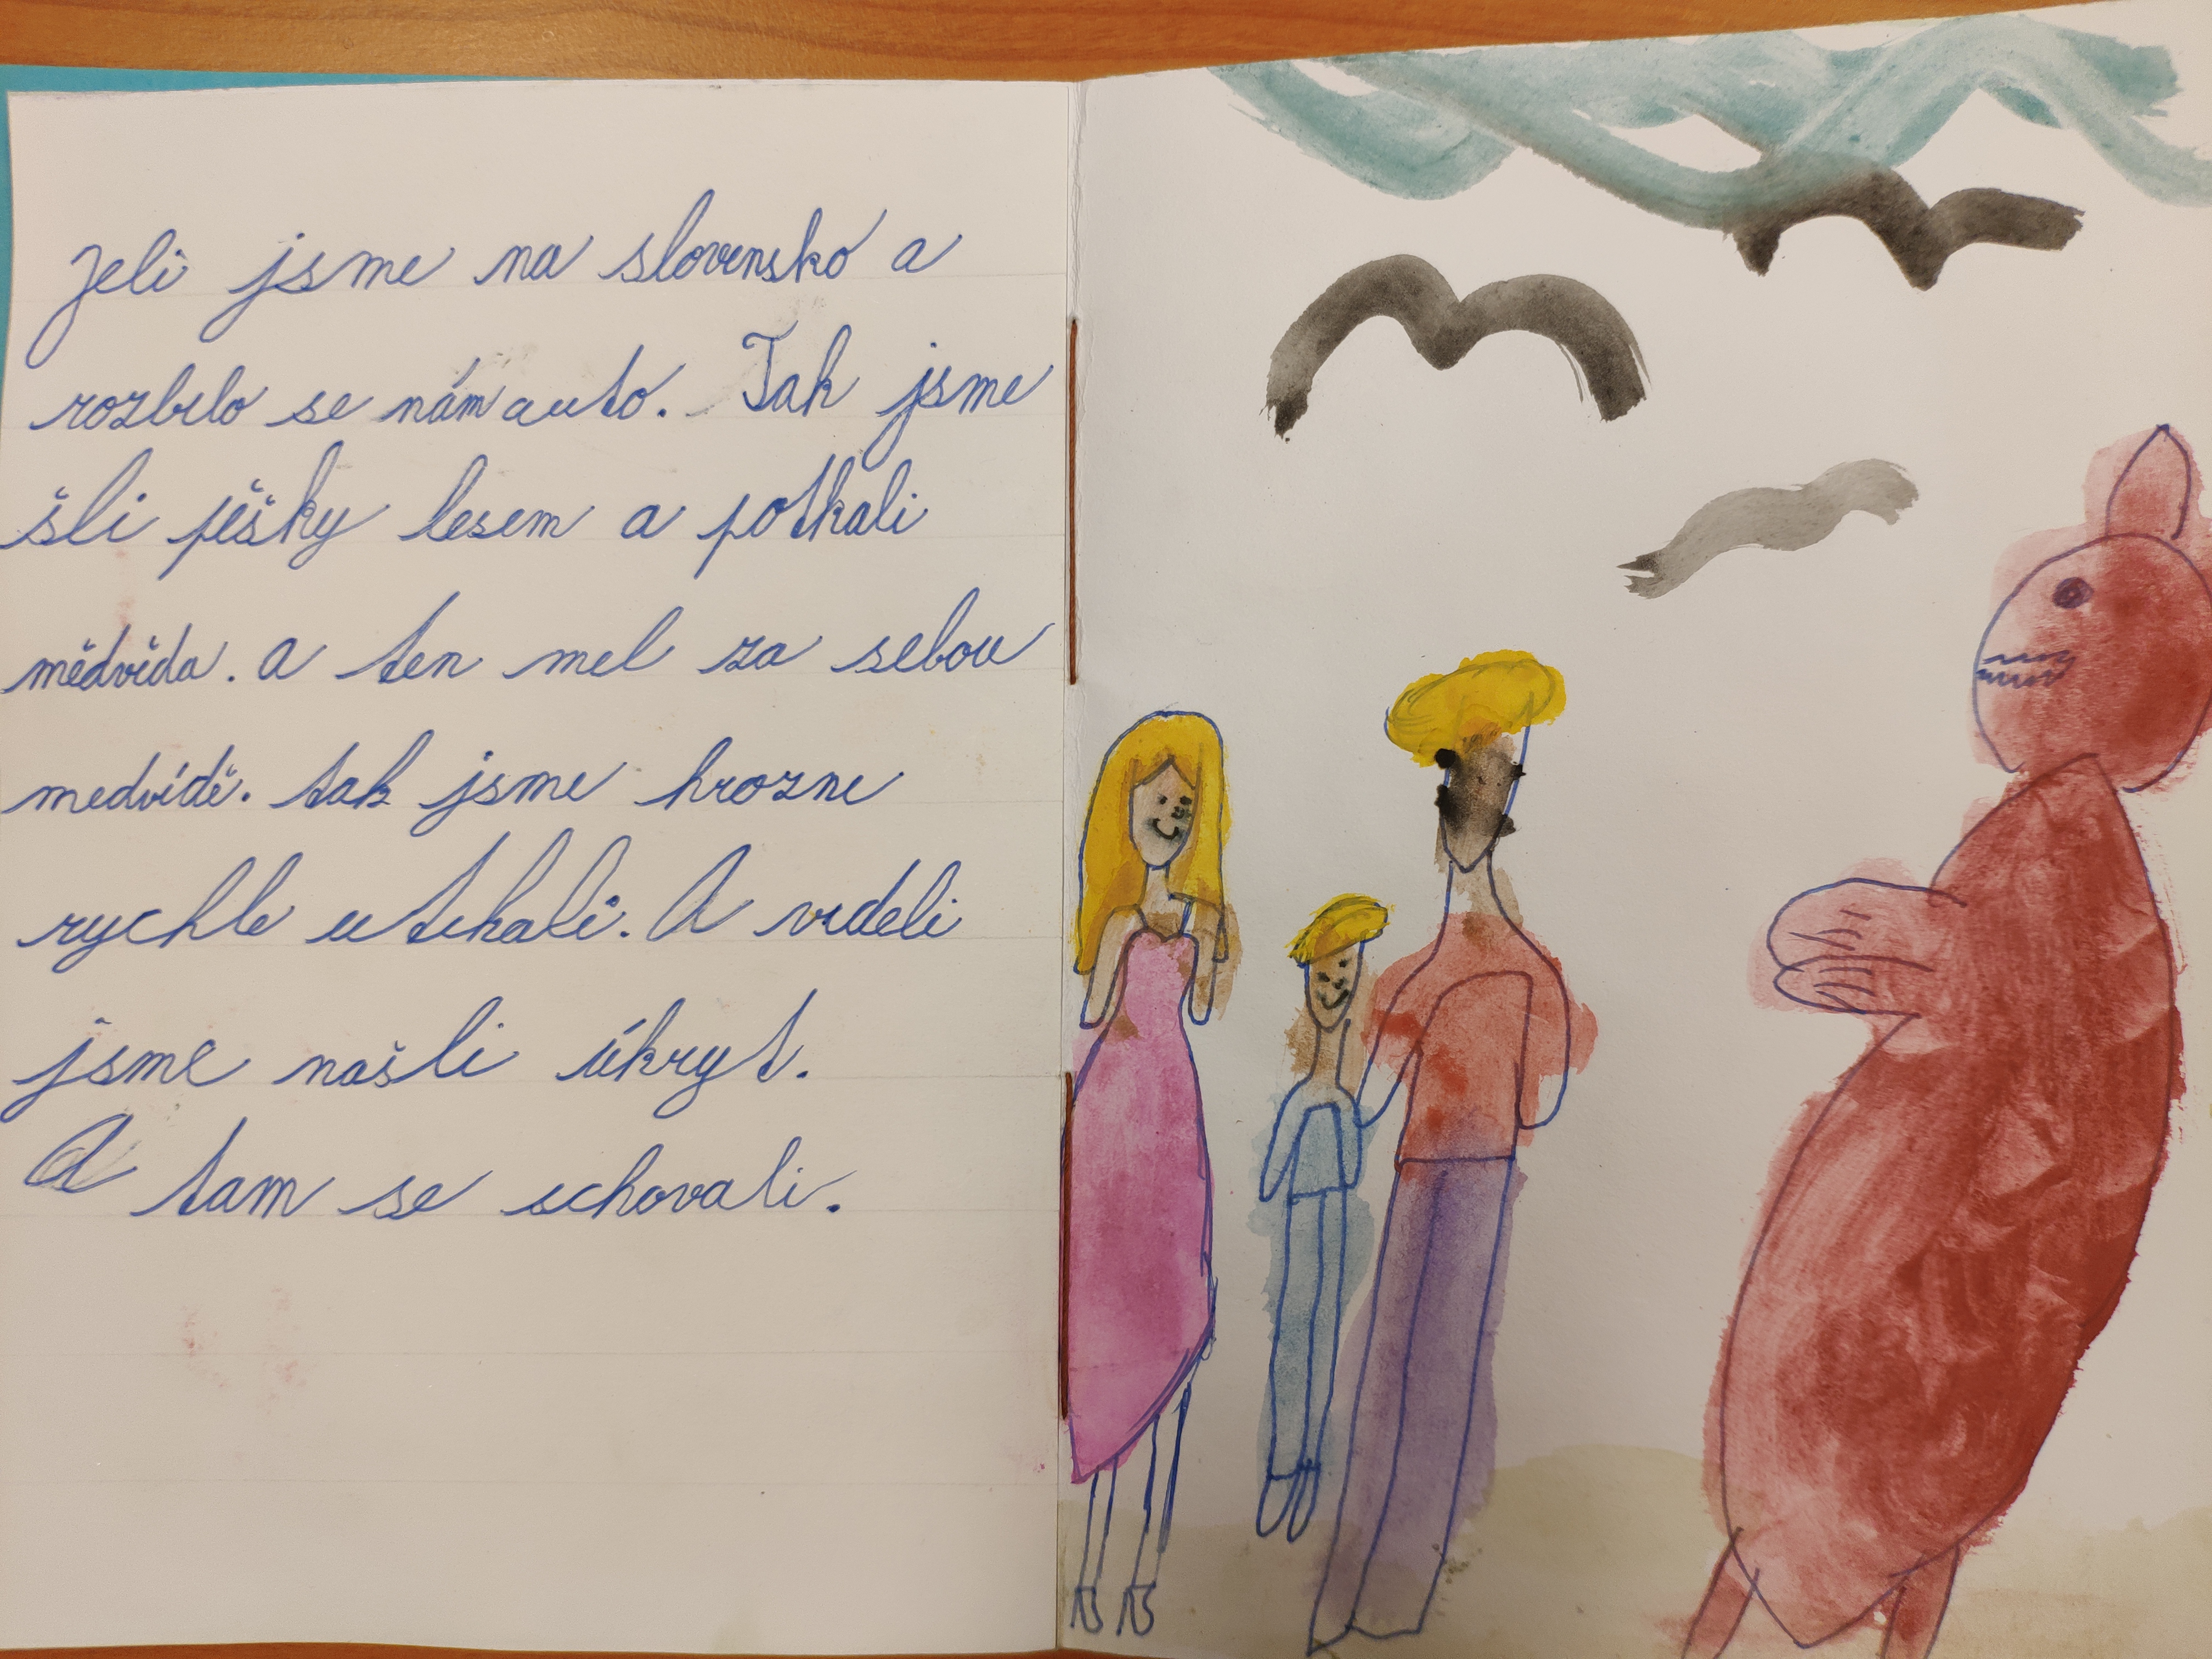 Jeli jsme na slovensko a
rozbilo se nám auto. Tak jsme
šli pěšky lesem a potkali
mědvěda. a ten mel za sebou
medvídě. tak jsme hrozne
rychle utekali. A videli
jsme našli úkryt.
A tam se schovali.